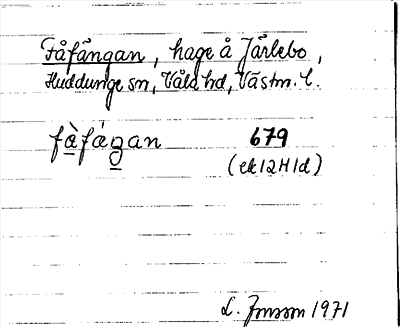 Fåfängan, hage å Järlebo,
Huddunge sn, Våla hd, Västm. l.
fàfágan 679
(ek 12H1d)
L. Jonsson 1971